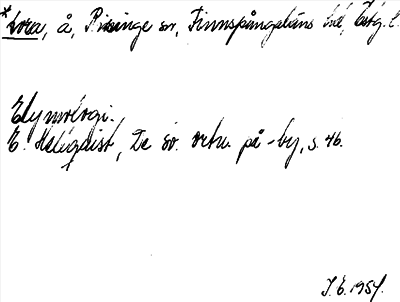 *Lora, å, Risinge sn, Finnspångaläns hd, Östg. l.
Etymologi.
E. Hellquist, De sv. ortn. på -by, s. 46.
J.E. 1954.